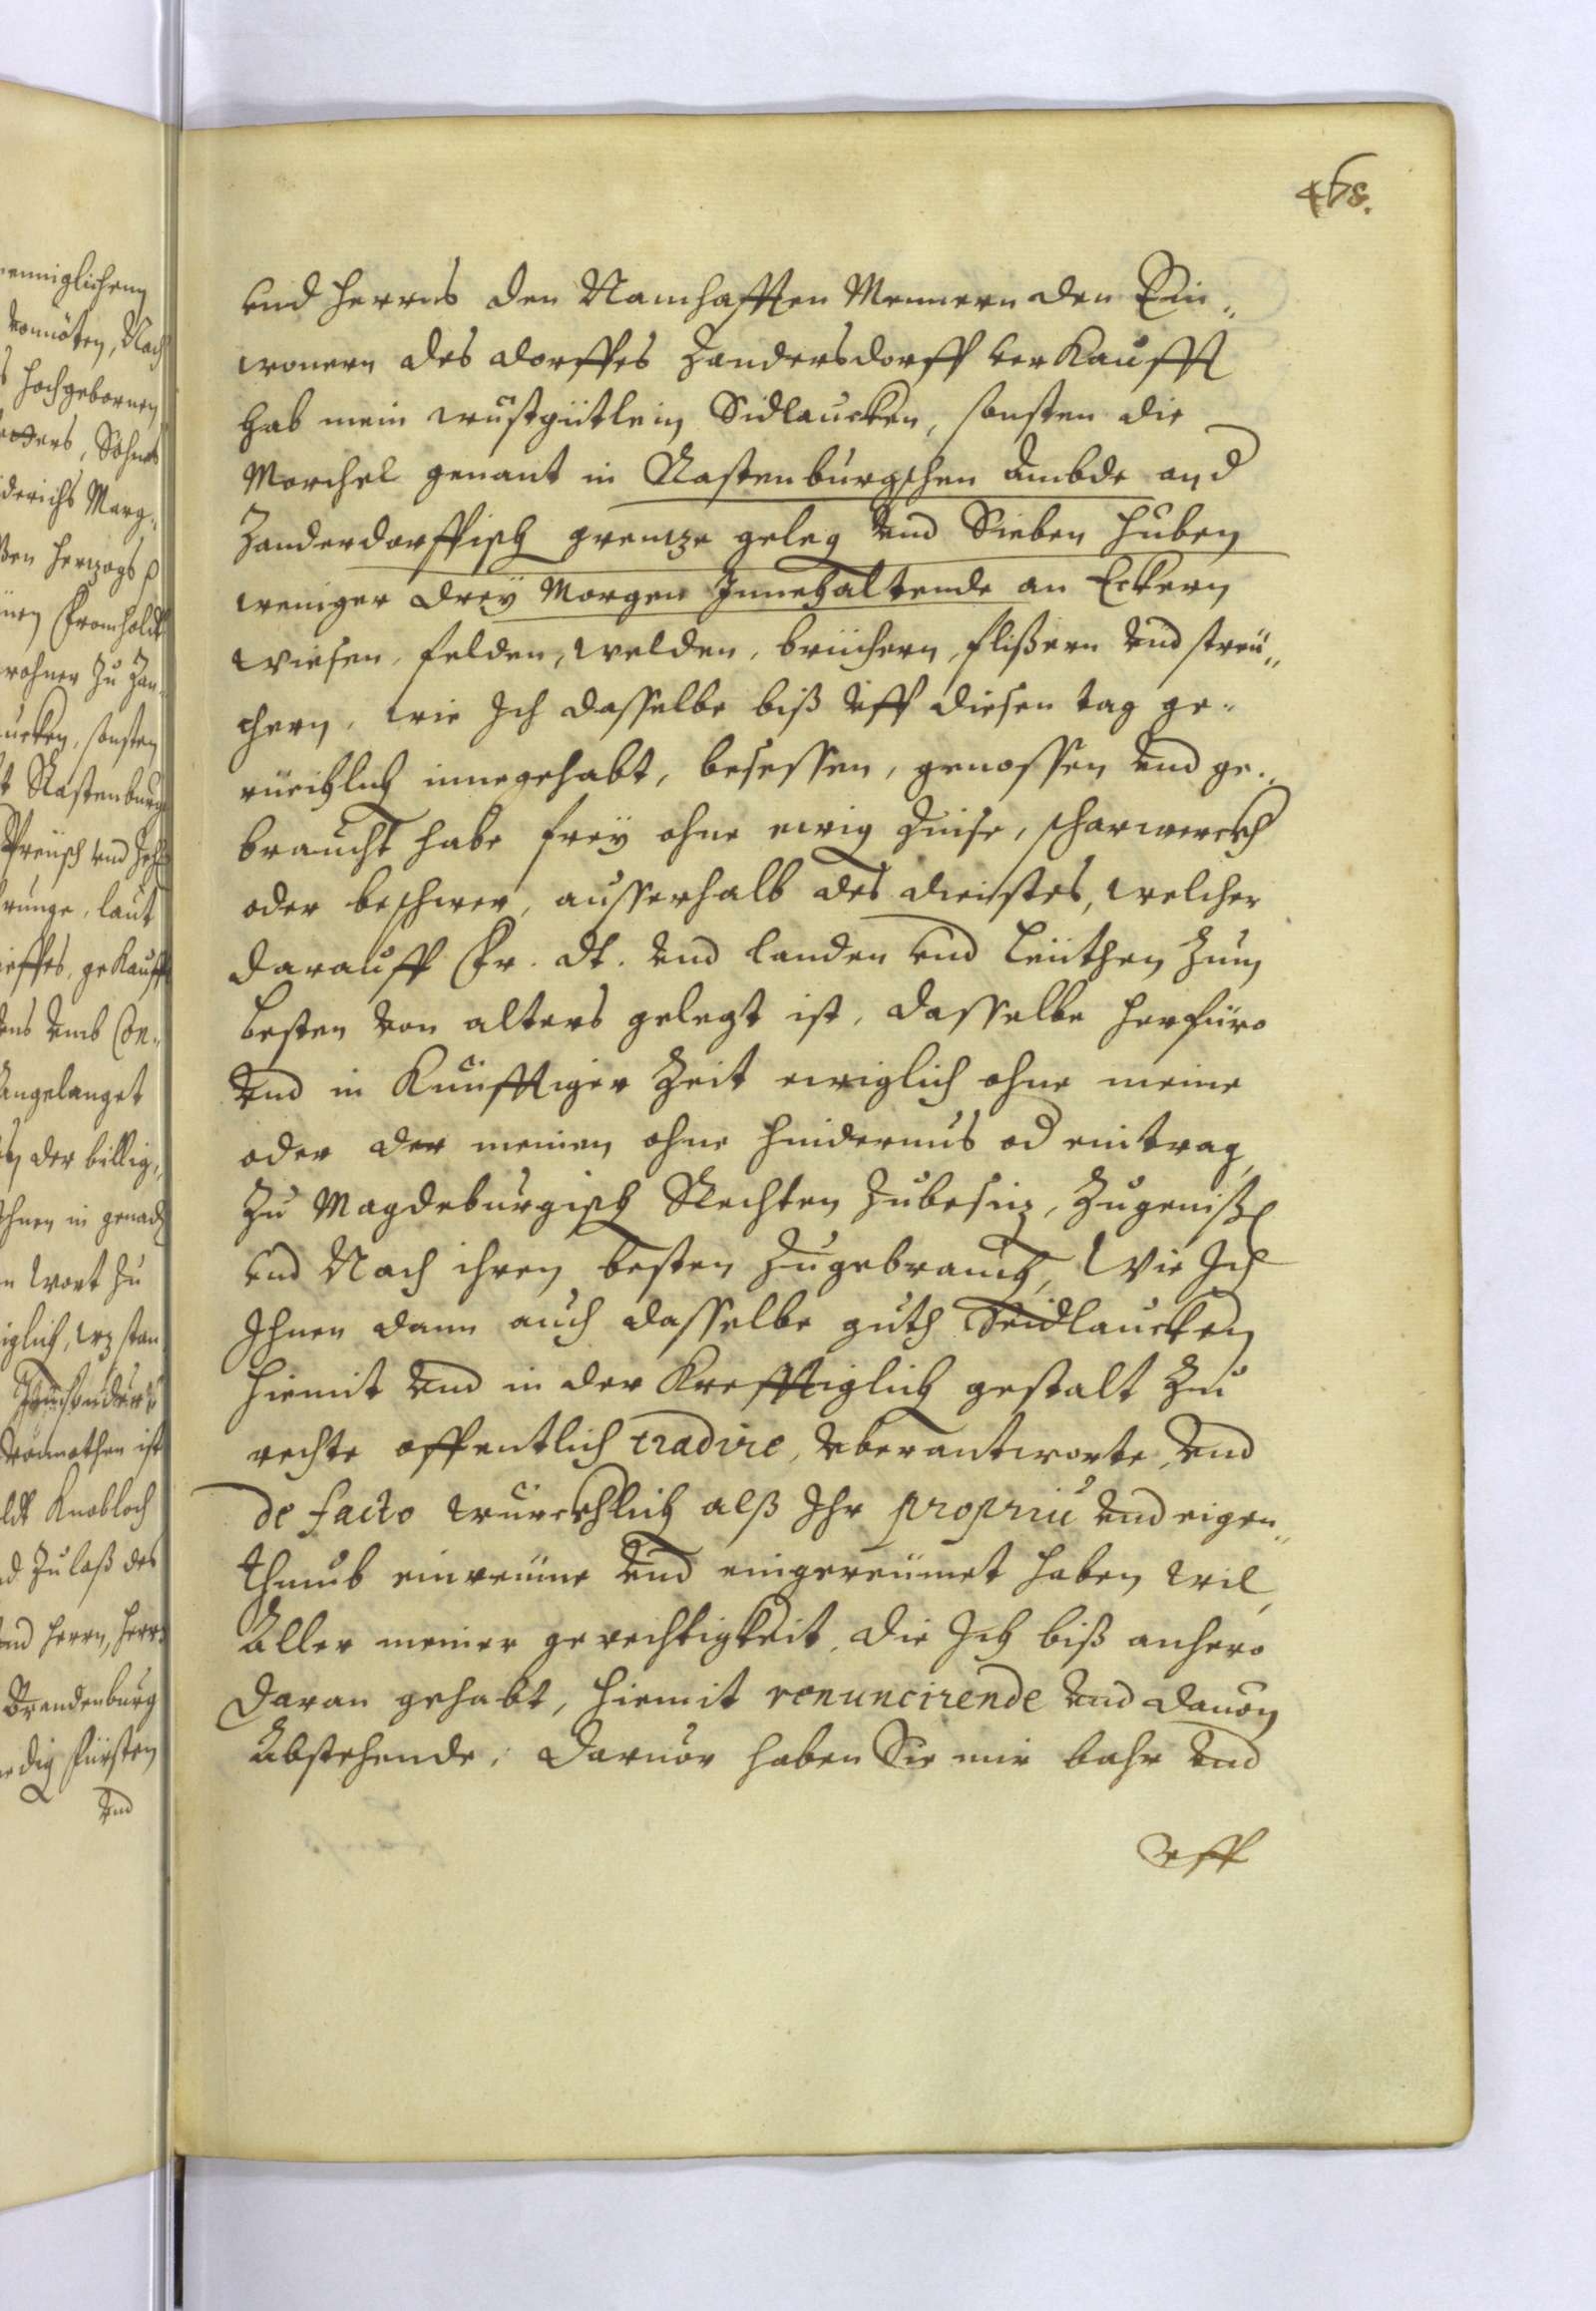 468.
vnd Herrns den Namhafften Mennern den Ein„
wonern des dorffes Zandersdorff verKaufft
hab mein wustgütlein Sidlaucken, sonsten die
Morchel genant in Rastenburgschen Ambde and
Zanderdorffisch grentze geleg vnd Sieben Huben
weniger drey Morgen Innehaltende an Eckern
wiesen, felden, welden, brüchern, flißern vnd streü„
chern, wie Ich dasselbe biß vff diesen tag ge„
rüchlich innegehabt, besessen, genossen vnd ge„
braucht habe frey ohne einig Zinse, scharwerckh
oder beschwer, ausserhalb des dienstes, welcher
darauff Fr. Dt. vnd landen vnd leüthen zum
besten von alters gelegt ist, dasselbe herfüro
vnd in Künfftiger Zeit ewiglich ohne meine
oder der meinen ohne hindernus od eintrag,
Zu Magdeburgisch Rechten zubesitz, zugenißen
vnd Nach ihren besten zugebrauch, Wie Ich
Ihnen dann auch dasselbe guth Seidlaucken
hiemit vnd in der Krefftiglich gestalt zu
rechte offentlich tradire, vberantworte, vnd
de facto würcklich alß Ihr propriu vnd eigen„
thumb einreüme vnd eingereümet haben wil,
Aller meiner gerechtigkeit, die Ich biß anhero
daran gehabt, hiemit renuncirende vnd dauon
Abstehende, daruor haben Sie mir bahr vnd
vff
enniglichem
vonnöten, Nach
Hochgebornen
Söhnes
iderichs Marg„
ßen Hertzogs
nen Fromholdt
wohner Zu Zan„
ucken, sonsten
t Rastenburg
Preüsch vnd
runge, laut
ieffes, geKaufft
ns vmb Con„
Angelanget
der billig„
Ihnen in genad
n Wort zu
iglich,
vonnothen ist
ldt Knobloch
d Zulaß des
nd Herrn, Herrn
Brandenburg
edig Fürsten
vnd